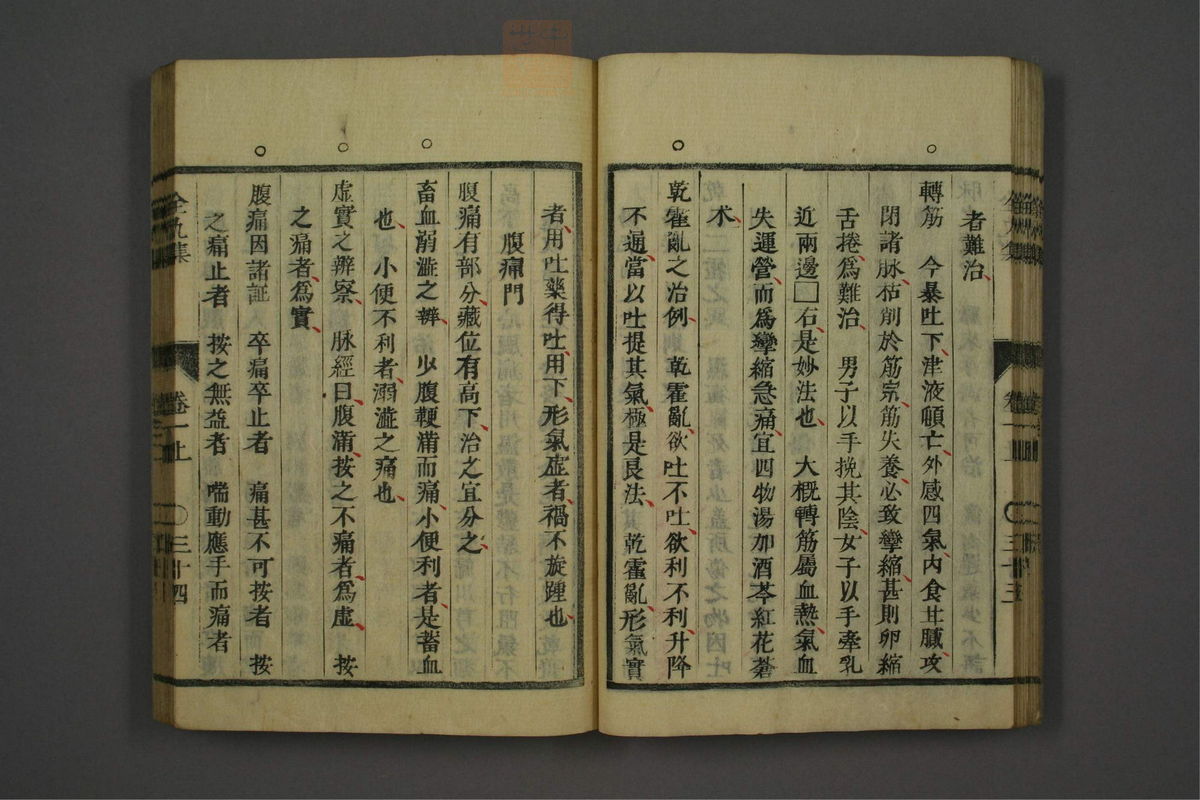 者難治
轉筋　今暴吐下津液頓亡外感四氣內食甘膩攻
閉諸脉枯削於筋宗筋失養必致攣縮甚則卵縮
舌捲爲難治　男子以手挽其陰女子以手牽乳
近兩邊□石是妙法也　大概轉筋屬血熱氣血
失運營而爲攣縮急痛宜四物湯加酒芩紅花蒼
术
乾霍亂之冶例　乾霍亂欲吐不吐欲利不利升降
不通當以吐提其氣極是良法　乾霍亂形氣實
者用吐藥得吐用下形氣虛者禍不旋踵也
腹痛門
腹痛有部分藏位有高下治之宜分之
畜血溺澁之辨　少腹鞕滿而痛小便利者是蓄血
也　小便不利者溺澁之痛也
虛實之辨察　脉經曰腹滿按之不痛者爲虛　按
之痛者爲實
腹痛因諸証　卒痛卒止者　痛甚不可按者　按
之痛止者　按之無益者　喘動應手而痛者
全九集
卷一上
〇三十四